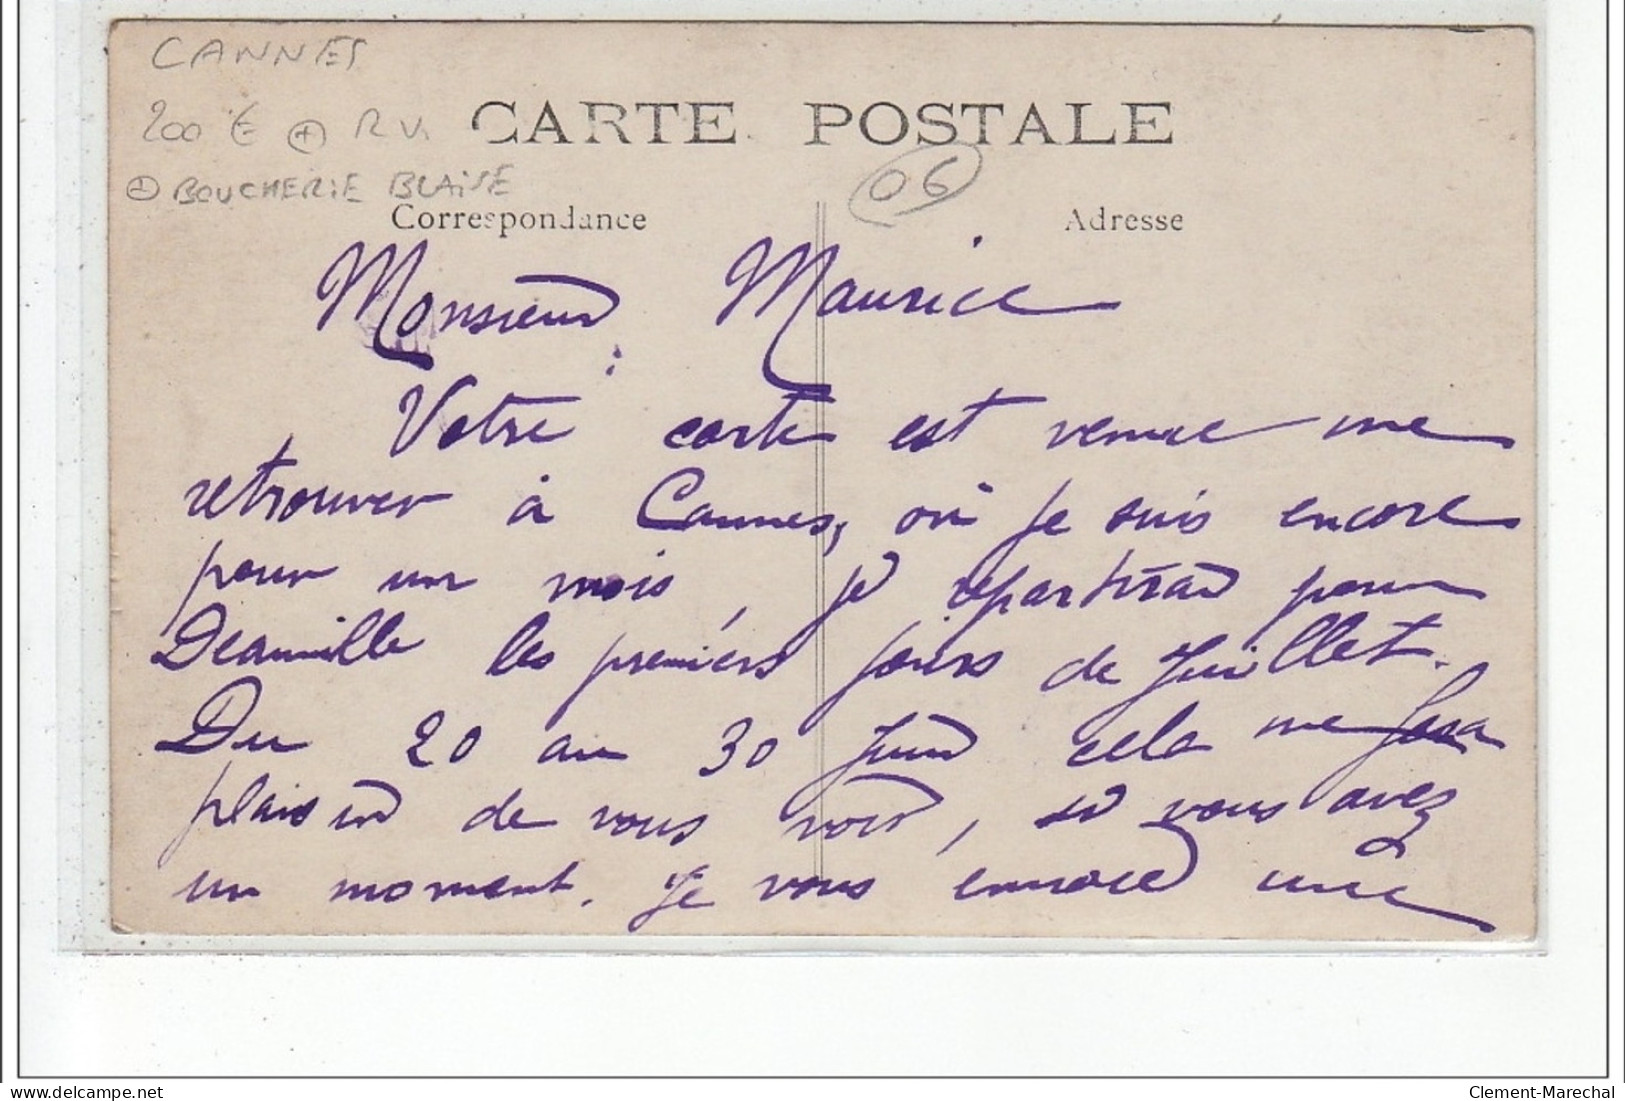 CANNES
200 € + R V.
CARTE POSTALE
06
+ BOUCHERIE BLAISE
Correspondance Adresse
Monsieur Maurice
Votre carte est venue me
retrouver à Cannes, où je suis encore
pour un mois, je repartirai pour
Deauville les premiers jours de Juillet.
Du 20 au 30 Juin cela me fera
plaisir de vous voir, si vous avez
un moment. Je vous envoie une
delcampe.net
Clement-Marechal